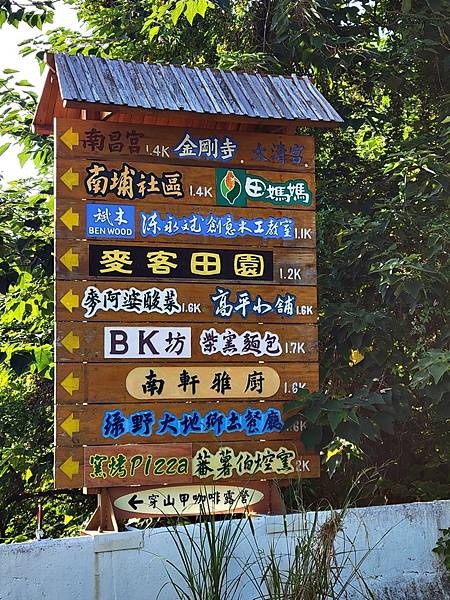 南昌宮 1.4K 金剛寺 太清宮
南埔社區 1.4K 田媽媽
斌木 BEN WOOD 陳永斌創意木工教室 1.1K
麥客田園 1.2K
麥阿婆酸菜 1.6K 高平小舖 1.6K
BK坊 紫窯麵包 1.7K
南軒雅廚 1.6K
綠野大地鄉土餐廳 1.6K
窯烤Pizza 蕃薯伯焢窯 2K
←穿山甲咖啡露營